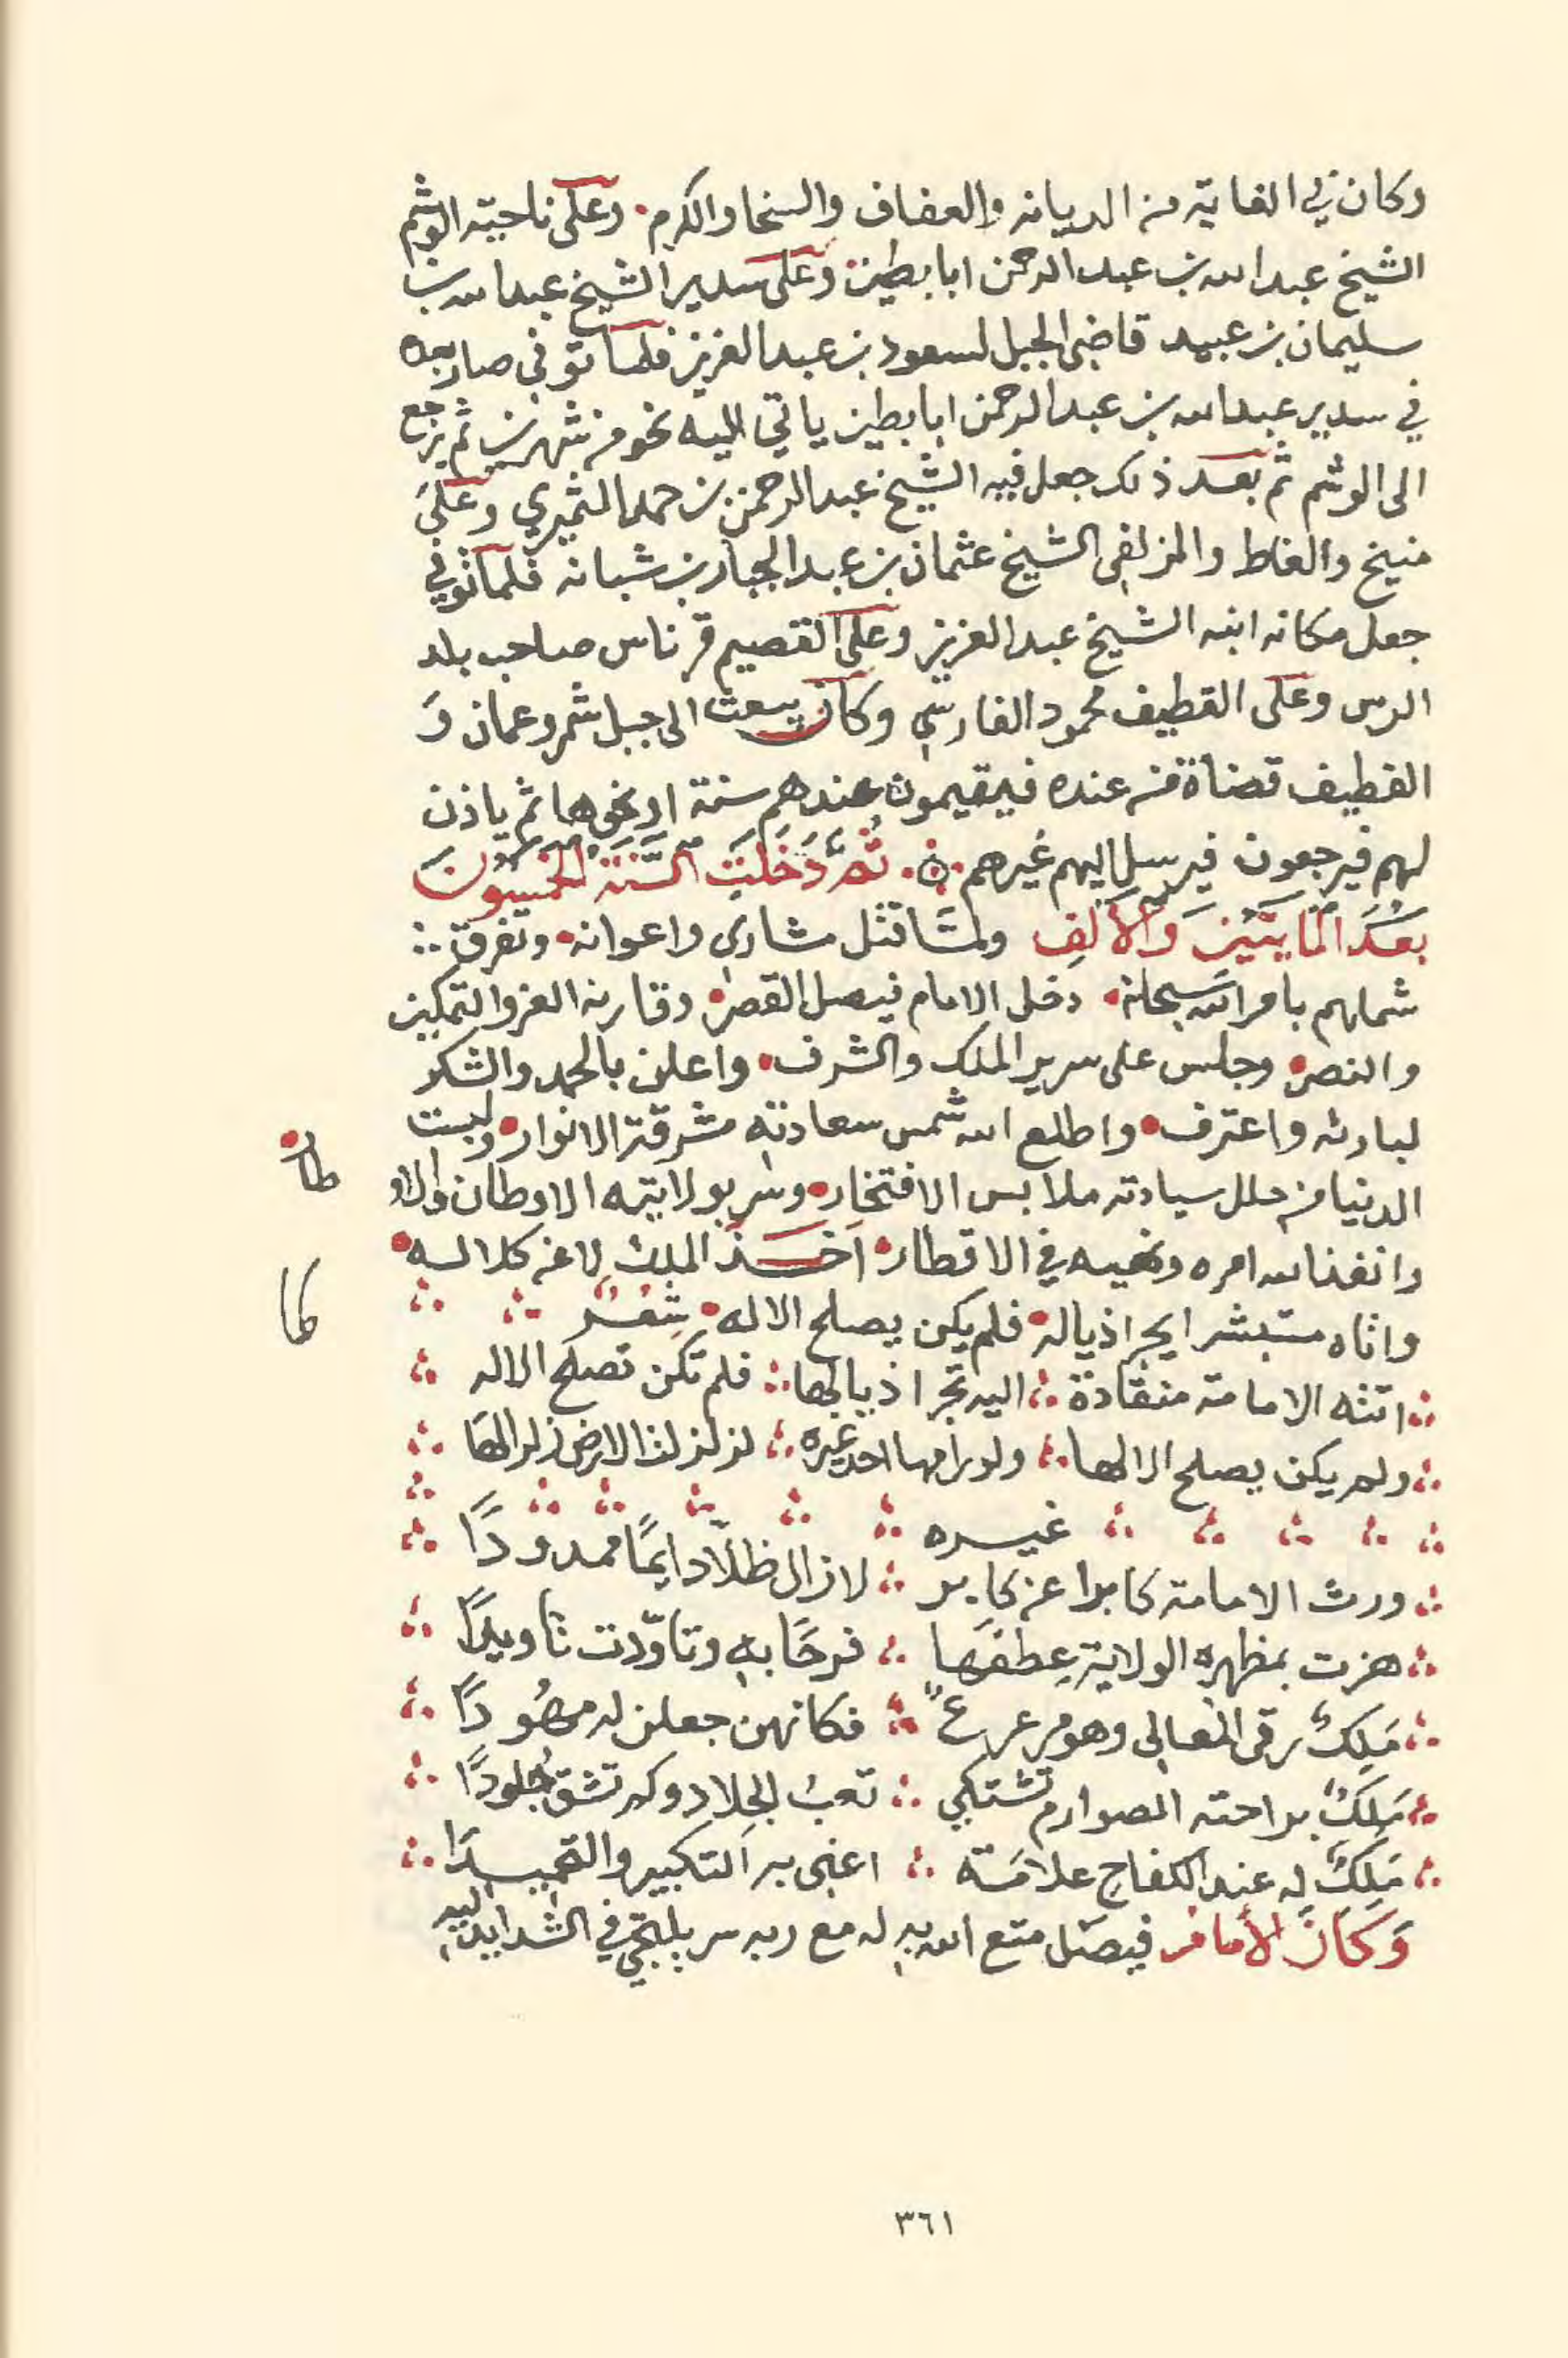 وكان في الغاية من الديانه والعفاف والسخا والكرم . وعلى ناحيته الوشم
الشيخ عبد الله بن عبد الرحمن ابا بطين وعلى سدير الشيخ عبد الله بن
سليمان بن عبيد قاضي الجبل لسعود بن عبد العزيز فلما توفي صار بعده
في سدير عبد الله بن عبد الرحمن ابا بطين ياتي اليه نحو من شهرين ثم يرجع
الى الوشم ثم بعد ذلك جعل فيه الشيخ عبد الرحمن بن حمد الثميري وعلى
منيخ والغاط والزلفي الشيخ عثمان بن عبد الجبار بن شبانه فلما توفي
جعل مكانه ابنه الشيخ عبد العزيز وعلى القصيم قرناس صاحب بلد
الرس وعلى القطيف محمود الفارسي وكان يبعث الى جبل شمر وعمان و
القطيف قضاة من عنده فيقيمون عندهم سنة او نحوها ثم ياذن
لهم فيرجعون فيرسل اليهم غيرهم . ثُمَّ دَخَلَتِ السَّنَة الخمسُونَ
بَعْدَ المايتَيْن وَالأَلفِ ولمّا قتل مشاري واعوانه . وتفرق
شملهم بامر الله سبحانه . دخل الامام فيصل القصر . وقارنه العز والتمكين
والنصر . وجلس على سرير الملك والشرف . واعلن بالحمد والشكر
لباريه واعترف . واطلع الله شمس سعادته مشرقة الانوار . ولبست
الدنيا من حلل سيادته ملابس الافتخار . وسر بولايته الاوطان والاو
طار .
وانفذ الله امره ونهيه في الاقطار . اخذ الملك لا عن كلاله .
كما
واتاه مستبشرا يجر اذياله . فلم يكن يصلح الا له . شِعْرٌ
اتته الامامة منقادة ∴ اليه تجر اذيالها ∴ فلم تكن تصلح الا له
ولم يكن يصلح الا لها ∴ ولو رامها احد غيره ∴ لزلزلت الارض زلزالها
غيره
ورث الامامة كابرا عن كابر ∴ لا زال ظلّا دايمًا ممدودًا
هزت بمظهره الولاية عِطفَها ∴ فرحًا به وتاوّدت تاويدًا
مَلِكٌ رقى المعالي وهو مرعرع ∴ فكانهن جعلن له مهُودًا
مَلِكٌ براحته الصوارم تشتكي ∴ تعبُ الجِلادِ وكم تشق جُلودًا
مَلِكٌ له عند الكفاحِ علامَته ∴ اعني به التكبير والتحميدَا
وَكَانَ الأمامُ فيصَل متع الله به له مع ربه سر يلتجي في الشدايد اليه
٣٦١